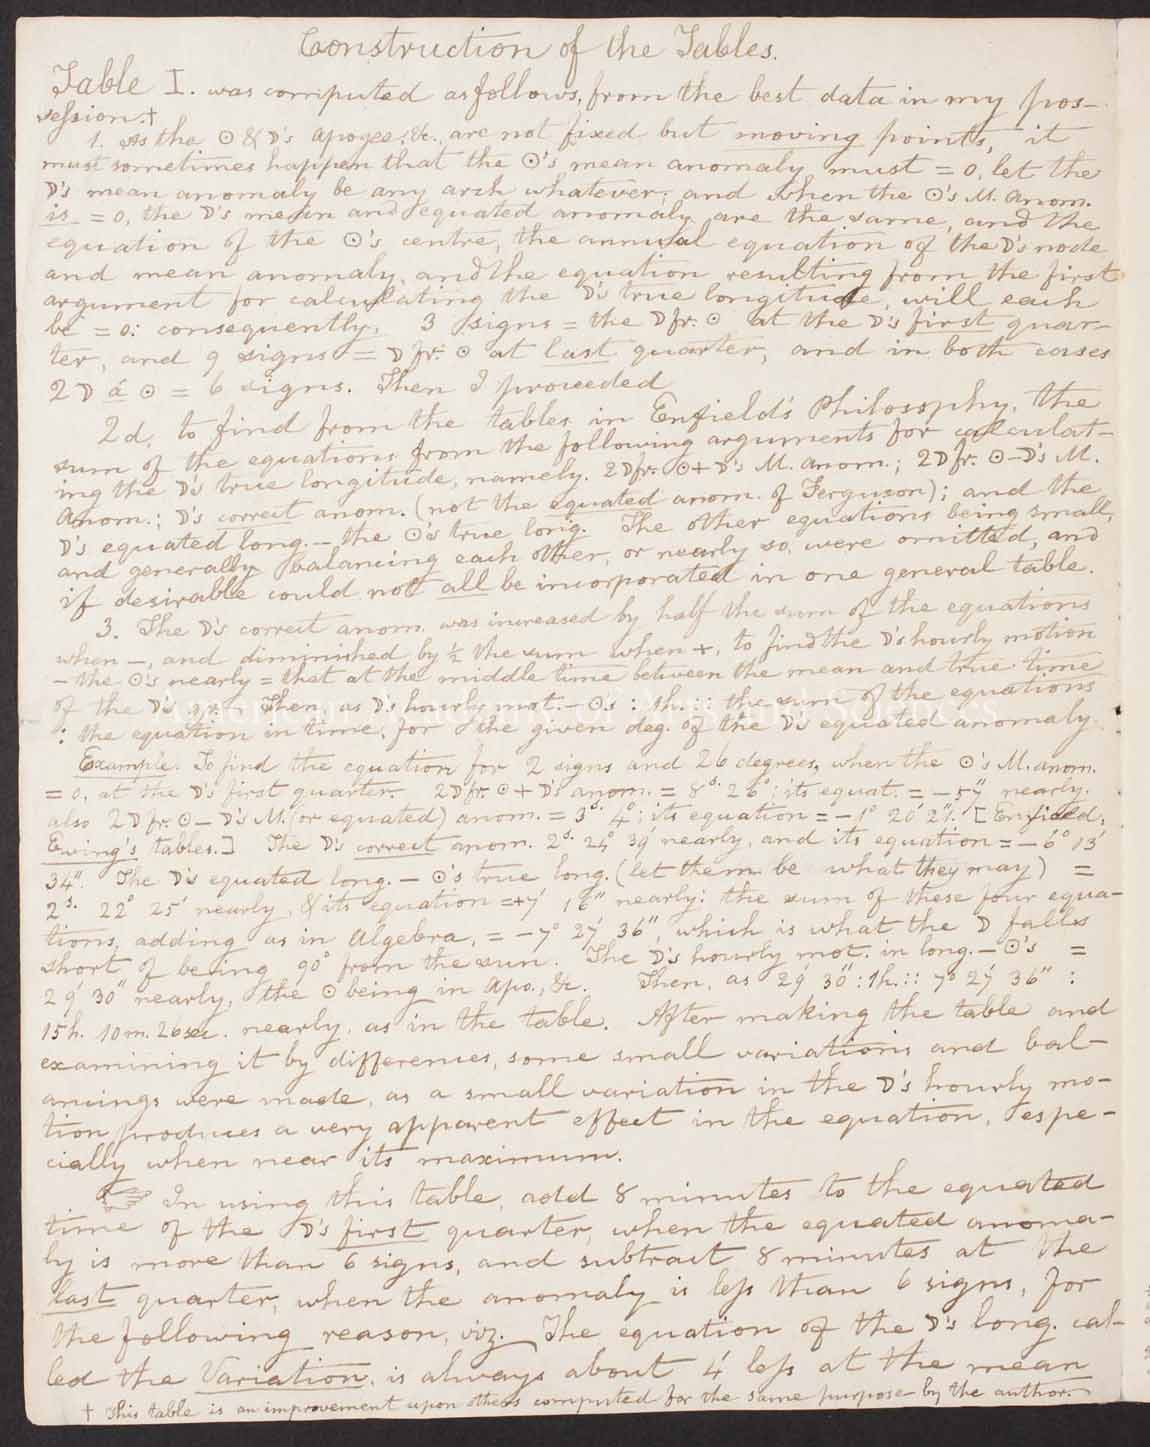 Construction of the Tables.
Table I. was computed as follows, from the best data in my pos-
session.†
1. As the ☉ & ☽'s apogee, &c. are not fixed but moving points, it
must sometimes happen that the ☉'s mean anomaly must = 0, let the
☽'s mean anomaly be any arch whatever; and when the ☉'s M. anom.
is = 0, the ☽'s mean and equated anomaly are the same, and the
equation of the ☉'s centre, the annual equation of the ☽'s node
and mean anomaly, and the equation resulting from the first
argument for calculating the ☽'s true longitude, will each
be = 0: consequently, 3 signs = the ☽ fr. ☉ at the ☽'s first quar-
ter, and 9 signs = ☽ fr. ☉ at last quarter, and in both cases
2 ☽ á ☉ = 6 signs. Then I proceeded
2d, to find from the tables in Enfield's Philosophy, the
sum of the equations from the following arguments for calculat-
ing the ☽'s true longitude, namely. 2☽ fr. ☉ + ☽'s M. anom.; 2☽ fr. ☉ - ☽'s M.
anom.; ☽'s correct anom. (not the equated anom. of Ferguson); and the
☽'s equated long. - the ☉'s true long. The other equations being small,
and generally balancing each other, or nearly so, were omitted, and
if desirable could not all be incorporated in one general table.
3. The ☽'s correct anom. was increased by half the sum of the equations
when -, and diminished by ½ the sum when +, to find the ☽'s hourly motion
- the ☉'s nearly = that at the middle time between the mean and true time
of the ☽'s qr. - Then, as ☽'s hourly mot. - ☉'s : 1h. :: the sum of the equations
: the equation in time, for the given deg. of the ☽'s equated anomaly.
Example. To find the equation for 2 signs and 26 degrees, when the ☉'s M. anom.
= 0, at the ☽'s first quarter. 2☽ fr. ☉ + ☽'s anom. = 8s. 26°; its equat. = - 57" nearly.
also 2☽ fr. ☉ - ☽'s M. (or equated) anom. = 3s. 4°; its equation = - 1° 20' 21". [Enfield,
Ewing's tables.] The ☽'s correct anom. 2s. 24° 39' nearly, and its equation = - 6° 13'
34". The ☽'s equated long. - ☉'s true long. (let them be what they may) =
2s. 22° 25' nearly, & its equation = + 7' 16" nearly: the sum of these four equa-
tions, adding as in Algebra, = - 7° 27' 36", which is what the ☽ falls
short of being 90° from the sun. The ☽'s hourly mot. in long. - ☉'s =
29' 30" nearly, the ☉ being in Apo., &c. Then, as 29' 30" : 1h. :: 7° 27' 36" :
15h. 10m. 26sec. nearly, as in the table. After making the table and
examining it by differences, some small variations and bal-
ancings were made, as a small variation in the ☽'s hourly mo-
tion produces a very apparent effect in the equation, espe-
cially when near its maximum.
☞ In using this table, add 8 minutes to the equated
time of the ☽'s first quarter, when the equated anoma-
ly is more than 6 signs, and subtract 8 minutes at the
last quarter, when the anomaly is less than 6 signs, for
the following reason, viz. The equation of the ☽'s long. cal-
led the Variation, is always about 4' less at the mean
† This table is an improvement upon others computed for the same purpose by the author.